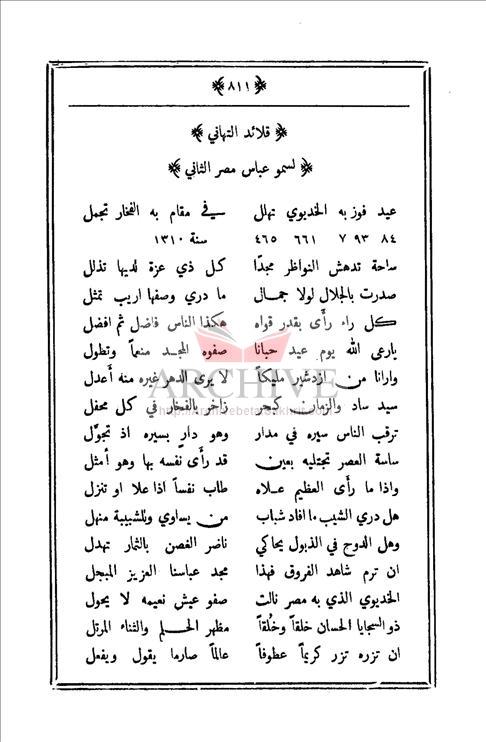 ﴿٨١١﴾
﴿ قلائد التهاني ﴾
﴿ لسمو عباس مصر الثاني ﴾
عيد فوز به الخديوي تهلل في مقام به الفخار تجمل
٨٤ ٩٣ ٧ ٦٦١ ٤٦٥ سنة ١٣١٠
ساحة تدهش النواظر مجدًا كل ذي عزة لديها تذلل
صدرت بالجلال لولا جمال ما دري وصفها اريب تمثل
كل راء رأى بقدر قواه هكذا الناس فاضل ثم افضل
يارعى الله يوم عيد حبانا صفوه المجد منعمًا وتطول
وارانا من ازدشير مليكًا لا يرى الدهر غيره منه أعدل
سيد ساد والزمان كبحر زاخر بالفخار في كل محفل
ترقب الناس سيره في مدار وهو دار بسيره اذ تجول
ساسة العصر تجتليه بعين قد رأى نفسه بها وهو أمثل
واذا ما رأى العظيم علاه طاب نفسًا اذا علا او تنزل
هل دري الشيب ما افاد شباب من يساوي وللشبيبة منهل
وهل الدوح في الذبول يحاكي ناضر الغصن بالثمار تهدل
ان ترم شاهد الفروق فهذا مجد عباسنا العزيز المبجل
الخديوي الذي به مصر نالت صفو عيش نعيمه لا يحول
ذو السجايا الحسان خلقًا وخُلقًا مظهر الحلم والثناء المرتل
ان تزره تزر كريمًا عطوفًا عالمًا صارمًا يقول ويفعل
ARCHIVE